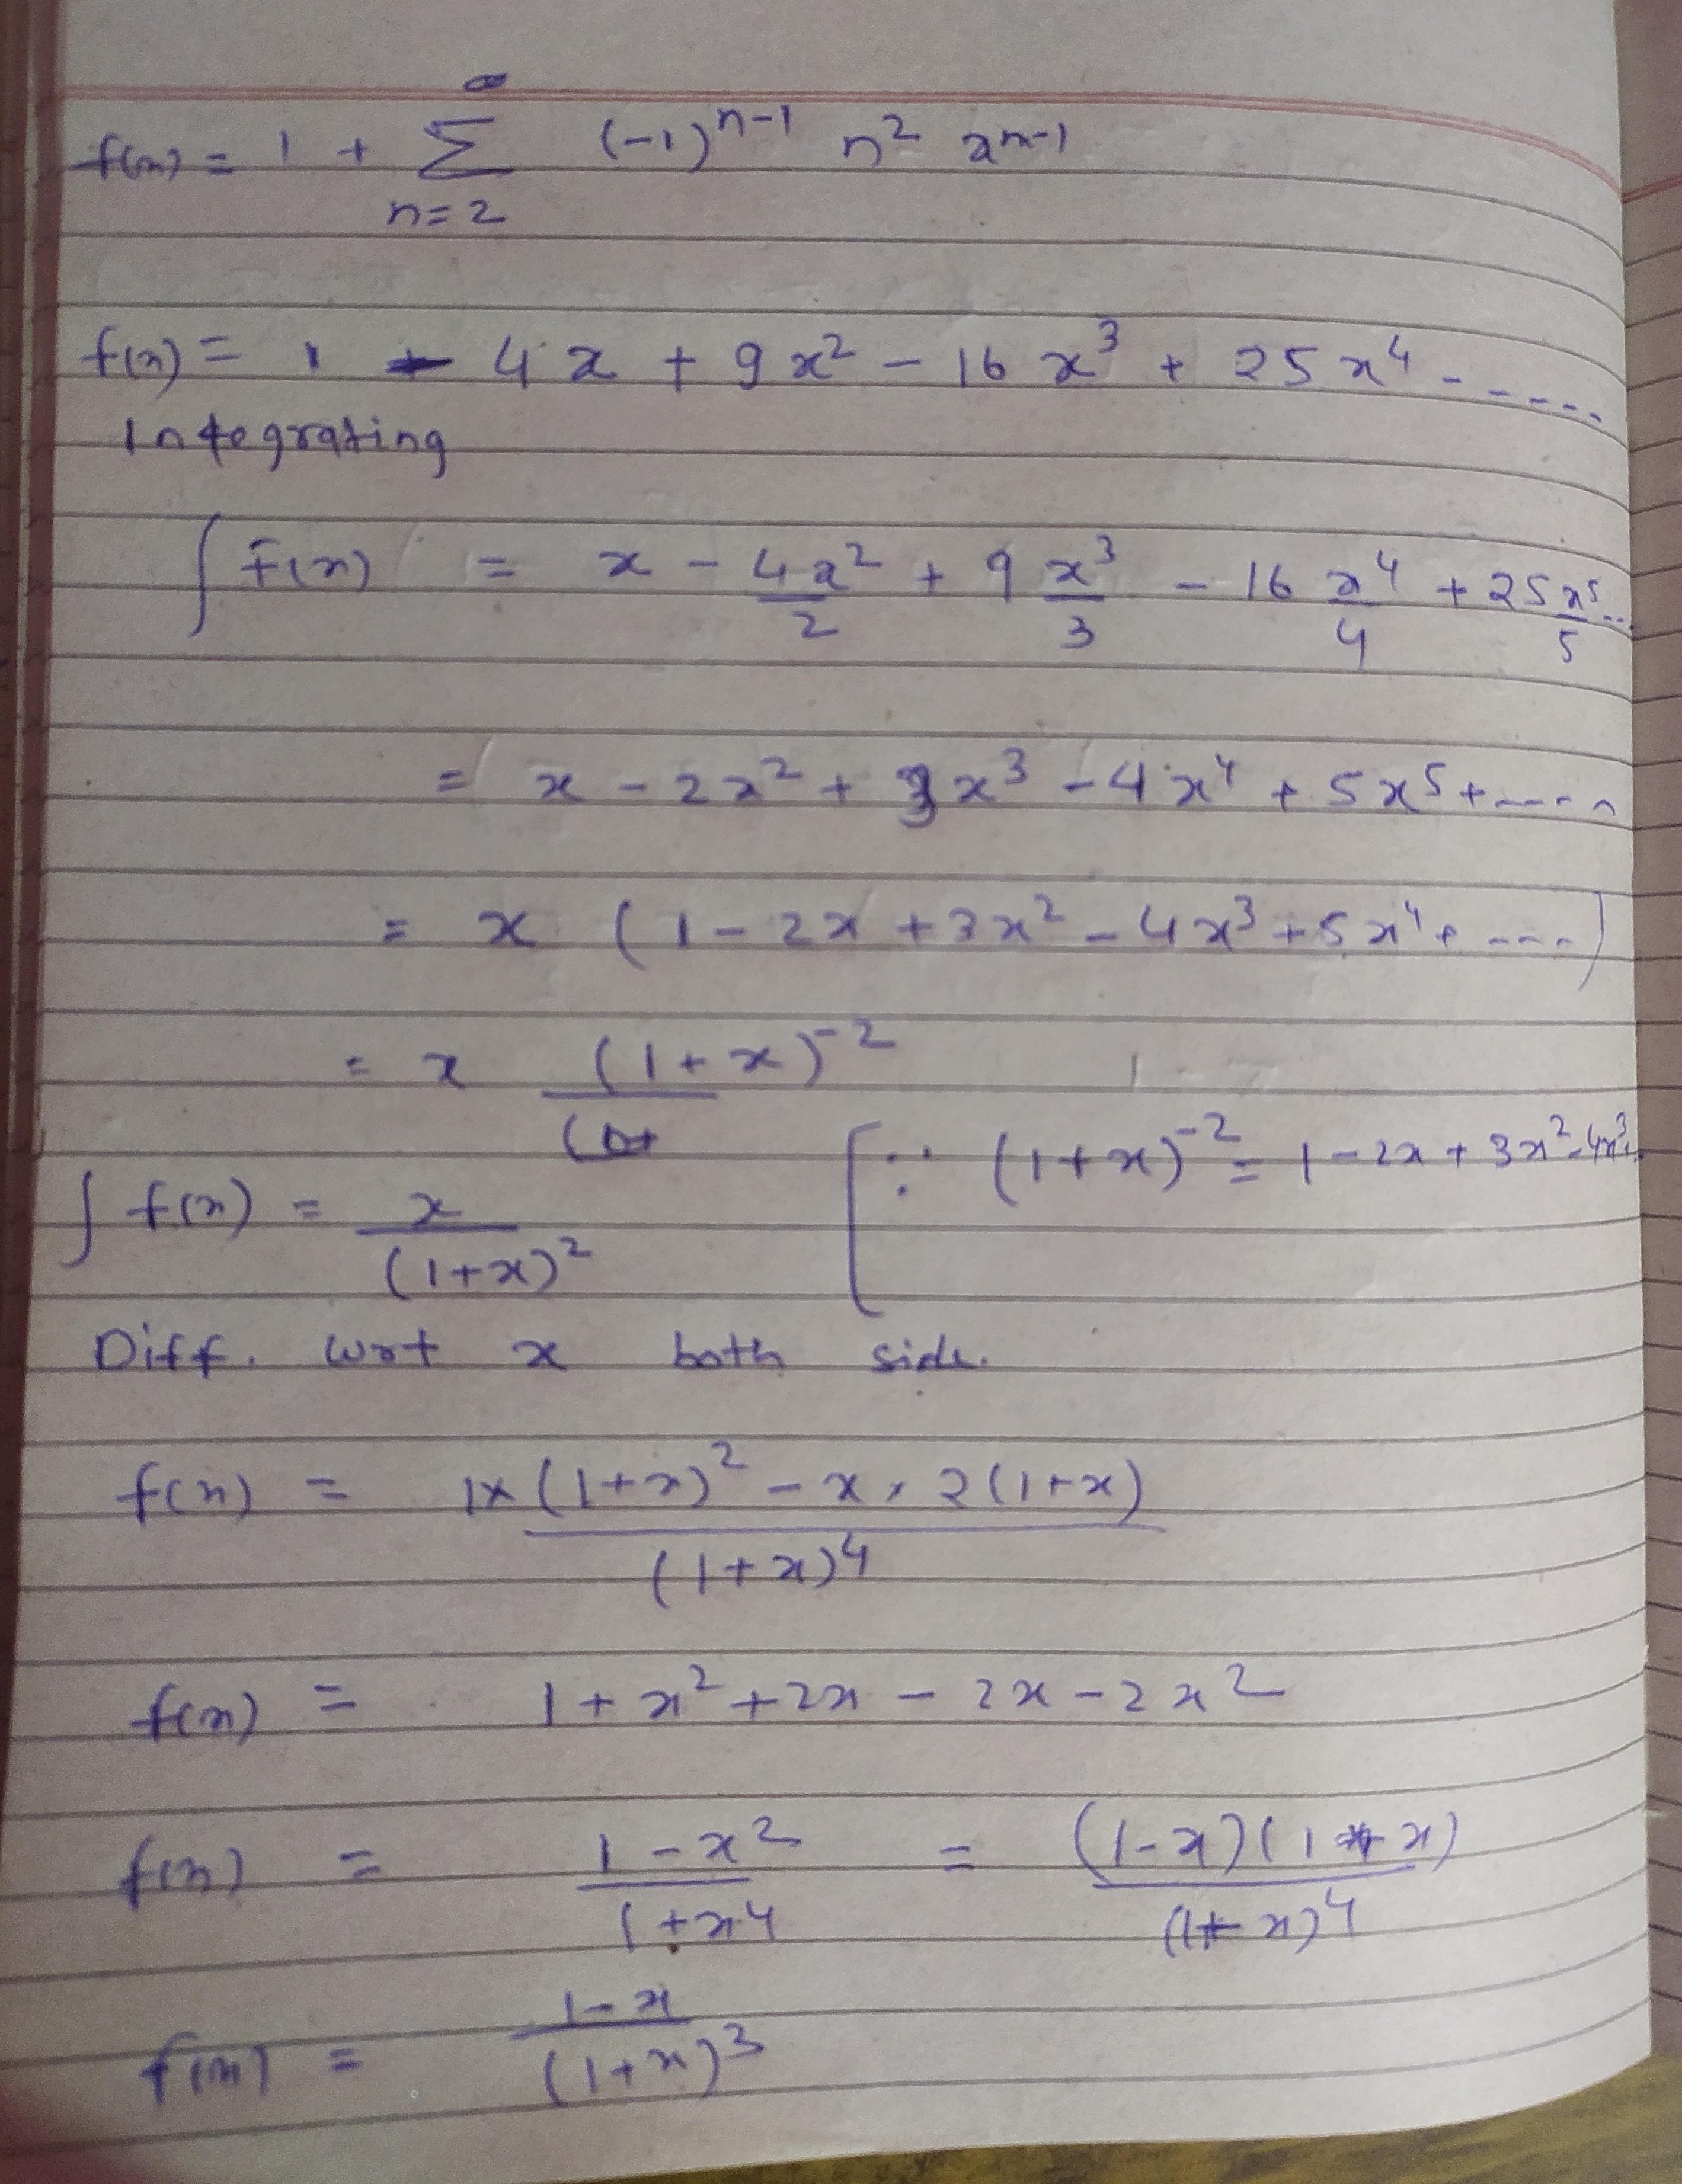 f(x) = 1 + ∞ Σ n=2 (-1)^{n-1} n² x^{n-1}
f(x) = 1 - 4x + 9x² - 16x³ + 25x⁴ - ----
Integrating
∫ f(x) = x - 4x²/2 + 9 x³/3 - 16 x⁴/4 + 25 x⁵/5 ..
= x - 2x² + 3x³ - 4x⁴ + 5x⁵ + ----
= x (1 - 2x + 3x² - 4x³ + 5x⁴ + ----)
= x (1+x)⁻²
[∵ (1+x)⁻² = 1 - 2x + 3x² - 4x³ +
∫ f(x) = x/(1+x)²
Diff. wrt x both side.
f(x) = 1×(1+x)² - x · 2(1+x)/(1+x)⁴
f(x) = 1 + x² + 2x - 2x - 2x²
f(x) = 1 - x²/1+x⁴ = (1-x)(1+x)/(1+x)⁴
f(x) = 1-x/(1+x)³